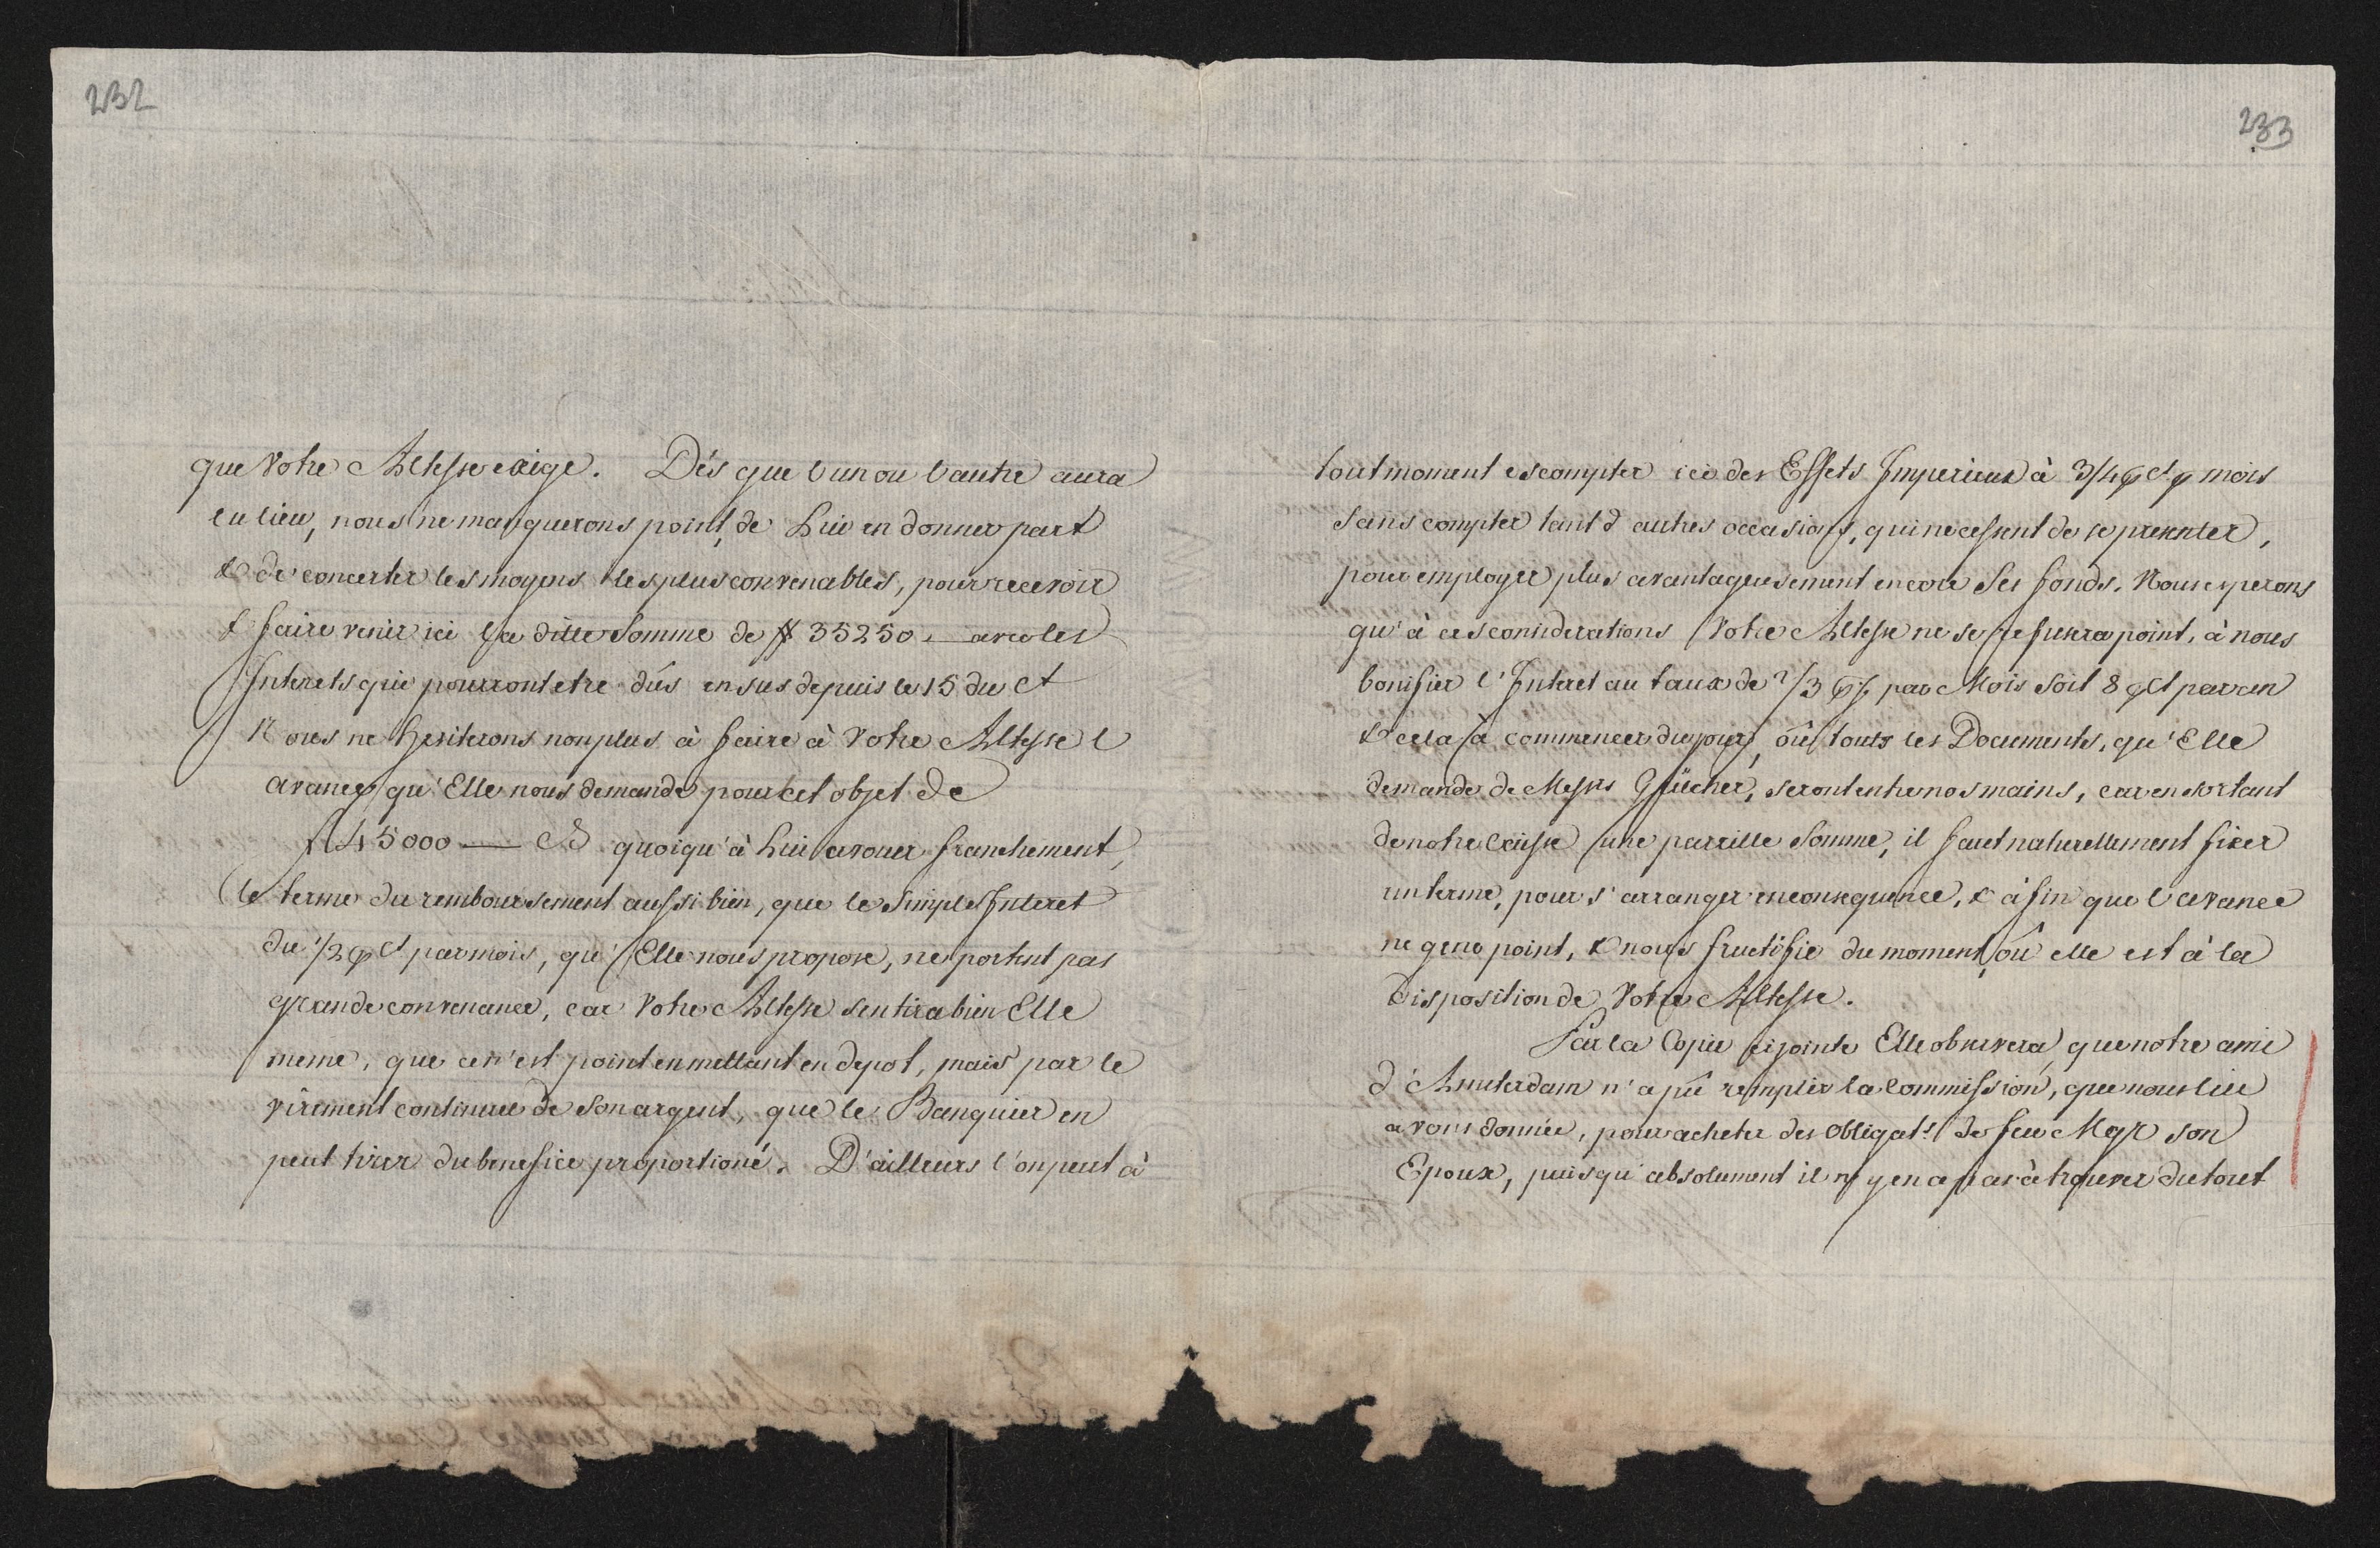 232
que Votre Altesse exige. Dés que l'un ou l'autre aura
eu lieu, nous ne manquerons point, de Lui en donner part
& de concerter les moyens les plus convenables, pour recevoir
& faire venir ici la ditte Somme de # 35250. — avec les
Interets qui pourront etre dús en sus depuis le 15 du Ct
Nous ne hesiterons non plus à faire à Votre Altesse l
avance qu'Elle nous demande pour cet objet de
f 45000 — quoiqu'à Lui avouer franchement,
le terme du remboursement aussi bien, que le Simple Interet
du 1/2 p Ct par mois, qu'Elle nous propose, ne portent pas
grande convenance, car Votre Altesse sentira bien Elle
meme, que ce n'est point en mettant en depot, mais par le
virement continuel de Son argent, que le Banquier en
peut tirer du benefice proportioné. D'ailleurs l'on peut à
233
tout moment escompter ici des Effets Imperieux à 3/4 p Ct p mois
sans compter tant d'autres occasions, qui ne cessent de se presenter,
pour employer plus avantageusement encore Ses fonds. Nous esperons
qu'à ces considerations Votre Altesse ne se refusera point, à nous
bonifier l'Interet au taux de 2/3 p% par Mois soit 8 p Ct par an
& cela à commencer du jour, oû touts les Documents, qu'Elle
demande de Messrs Glücher, seront entre nos mains, car en sortant
de notre Caisse une pareille Somme, il faut naturellement fixer
un terme, pour s'arranger en consequence, & à fin que l'avance
ne gene point, & nous fructifie du moment, oû elle est à la
Disposition de Votre Altesse.
Par la Copie cijointe Elle observera, que notre ami
d'Amsterdam n'a pû remplir la Commission, que nous lui
avons donnée, pour acheter des Obligats. de feu Msgr son
Epoux, puisqu'absolument il n'y en a pas à trouver du tout